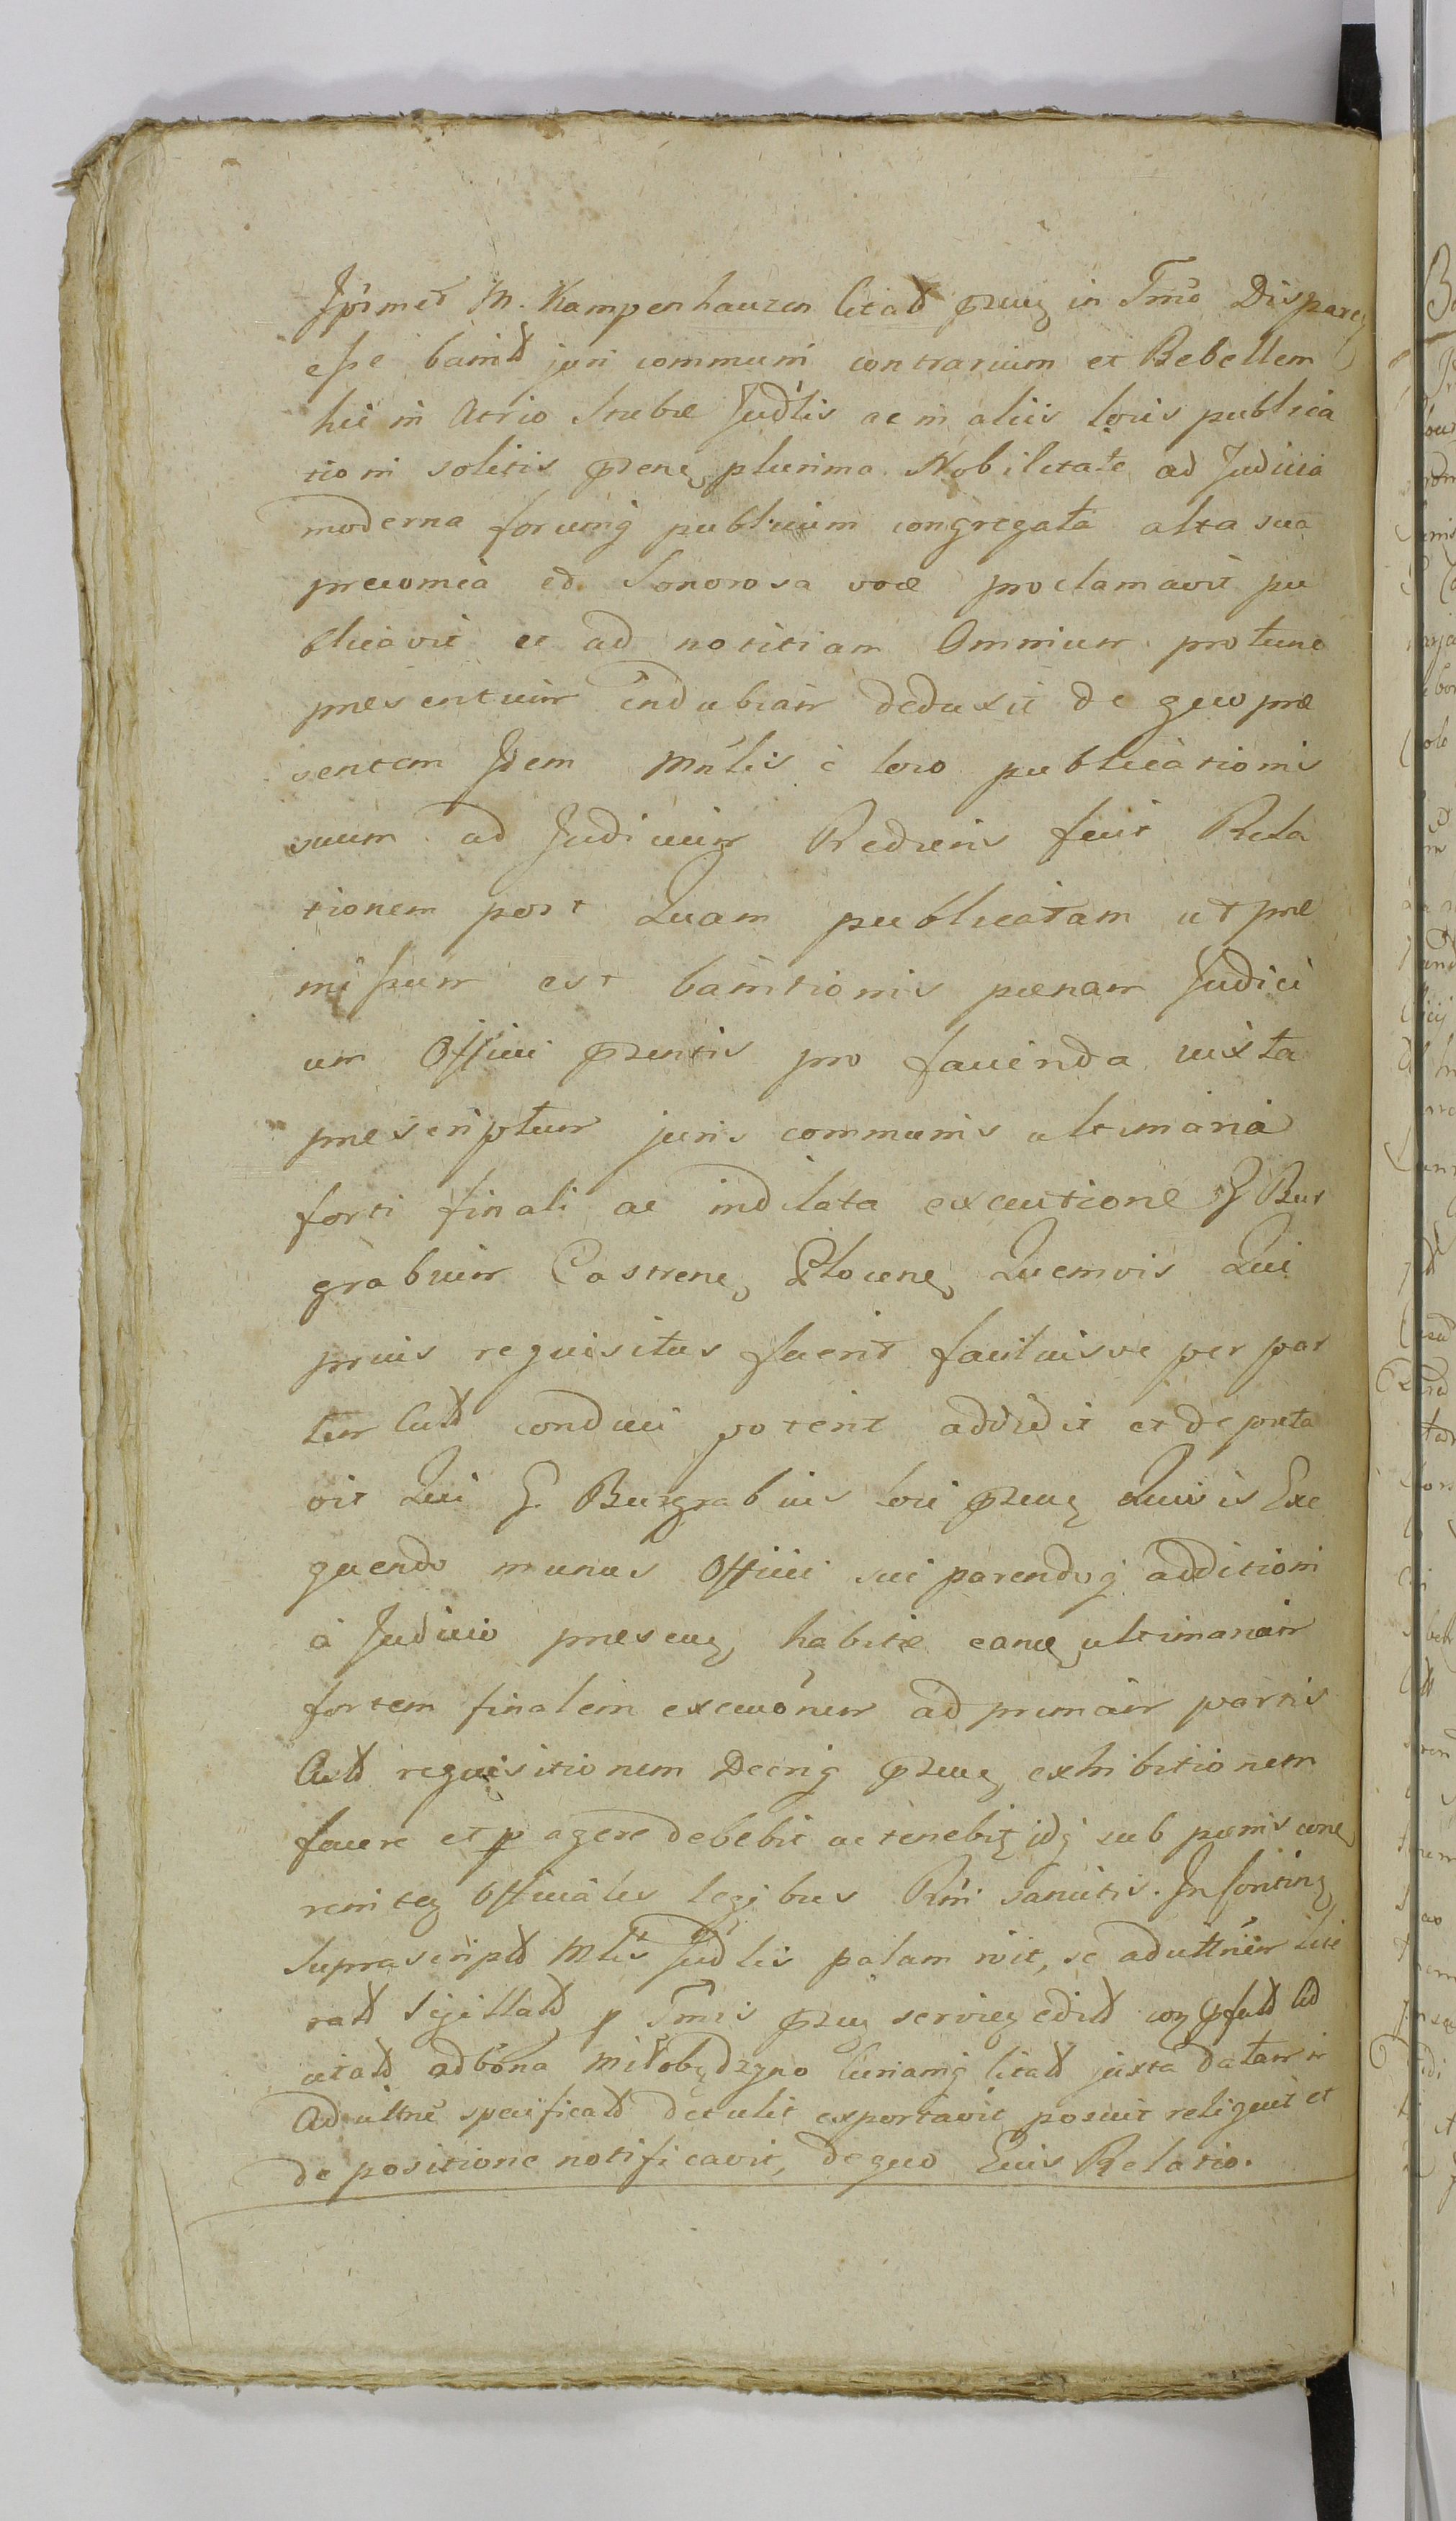 Ipsmet M. Kampenhauzen Citatt przny in Tmô Disparen
esse banitt juri communi contrarium et Rebellem
hic in Atrio Stubæ Judlis ac in aliis locis publica
tioni solitis przene plurima Nobilitate ad Judicia
moderna forumq publicum congregata alta sua
preconica ed Sonorosa voce proclamavit pu
blicavit et ad notitiam Omnium protunc
presentium indubiam deduxit de quo præ
sentem Idem Mnlis è loco publicationis
suum ad Judicium Rediens fecit Rela
tionem post Quam publicatam ut præ
missum est banitionis pœnam Judici
um Officii przentis pro facienda iuxta
prescriptum juris communis ultimaria
forti finali ac indilata executione G Bur
grabium Castrene Plocene Quemvis Qui
prius requisitus fuerit faciliusve per par
tem Actt conduci poterit addidit et deputa
vit Qui G. Burgrabius loci przny Quivis Exe
quendo munus Officii sui parendoq additioni
à Judicio presenq habitæ eane ultimariam
fortem finalem execuônem ad primam partis
Actt requisitionem Decriq przny exhibitionem
facere et p agere debebit ac tenebit, idq sub pœnis cone
renitq Officiales legibus Rni sancitis. In continq
Suprascriptt Mlis Judlis palam rcit, se aduttnem lite
ratt Sigillatt p Tmis przny serviey editt coq Pfatt Cid
citatt ad bona Miłobędzyno Curiamq Citatt juxta datam in
Aduittne specificatt detulit exportavit posuit reliquit et
de positione notificavit, de quo Eius Relatio.